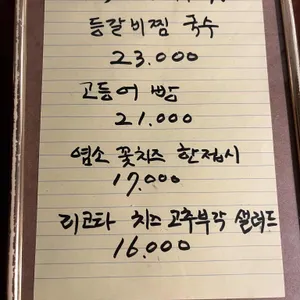 등갈비찜 국수
23.000
고등어 빵
21.000
염소 꽃치즈 한접시
17.000
리코타 치즈 고추부각 샐러드
16.000